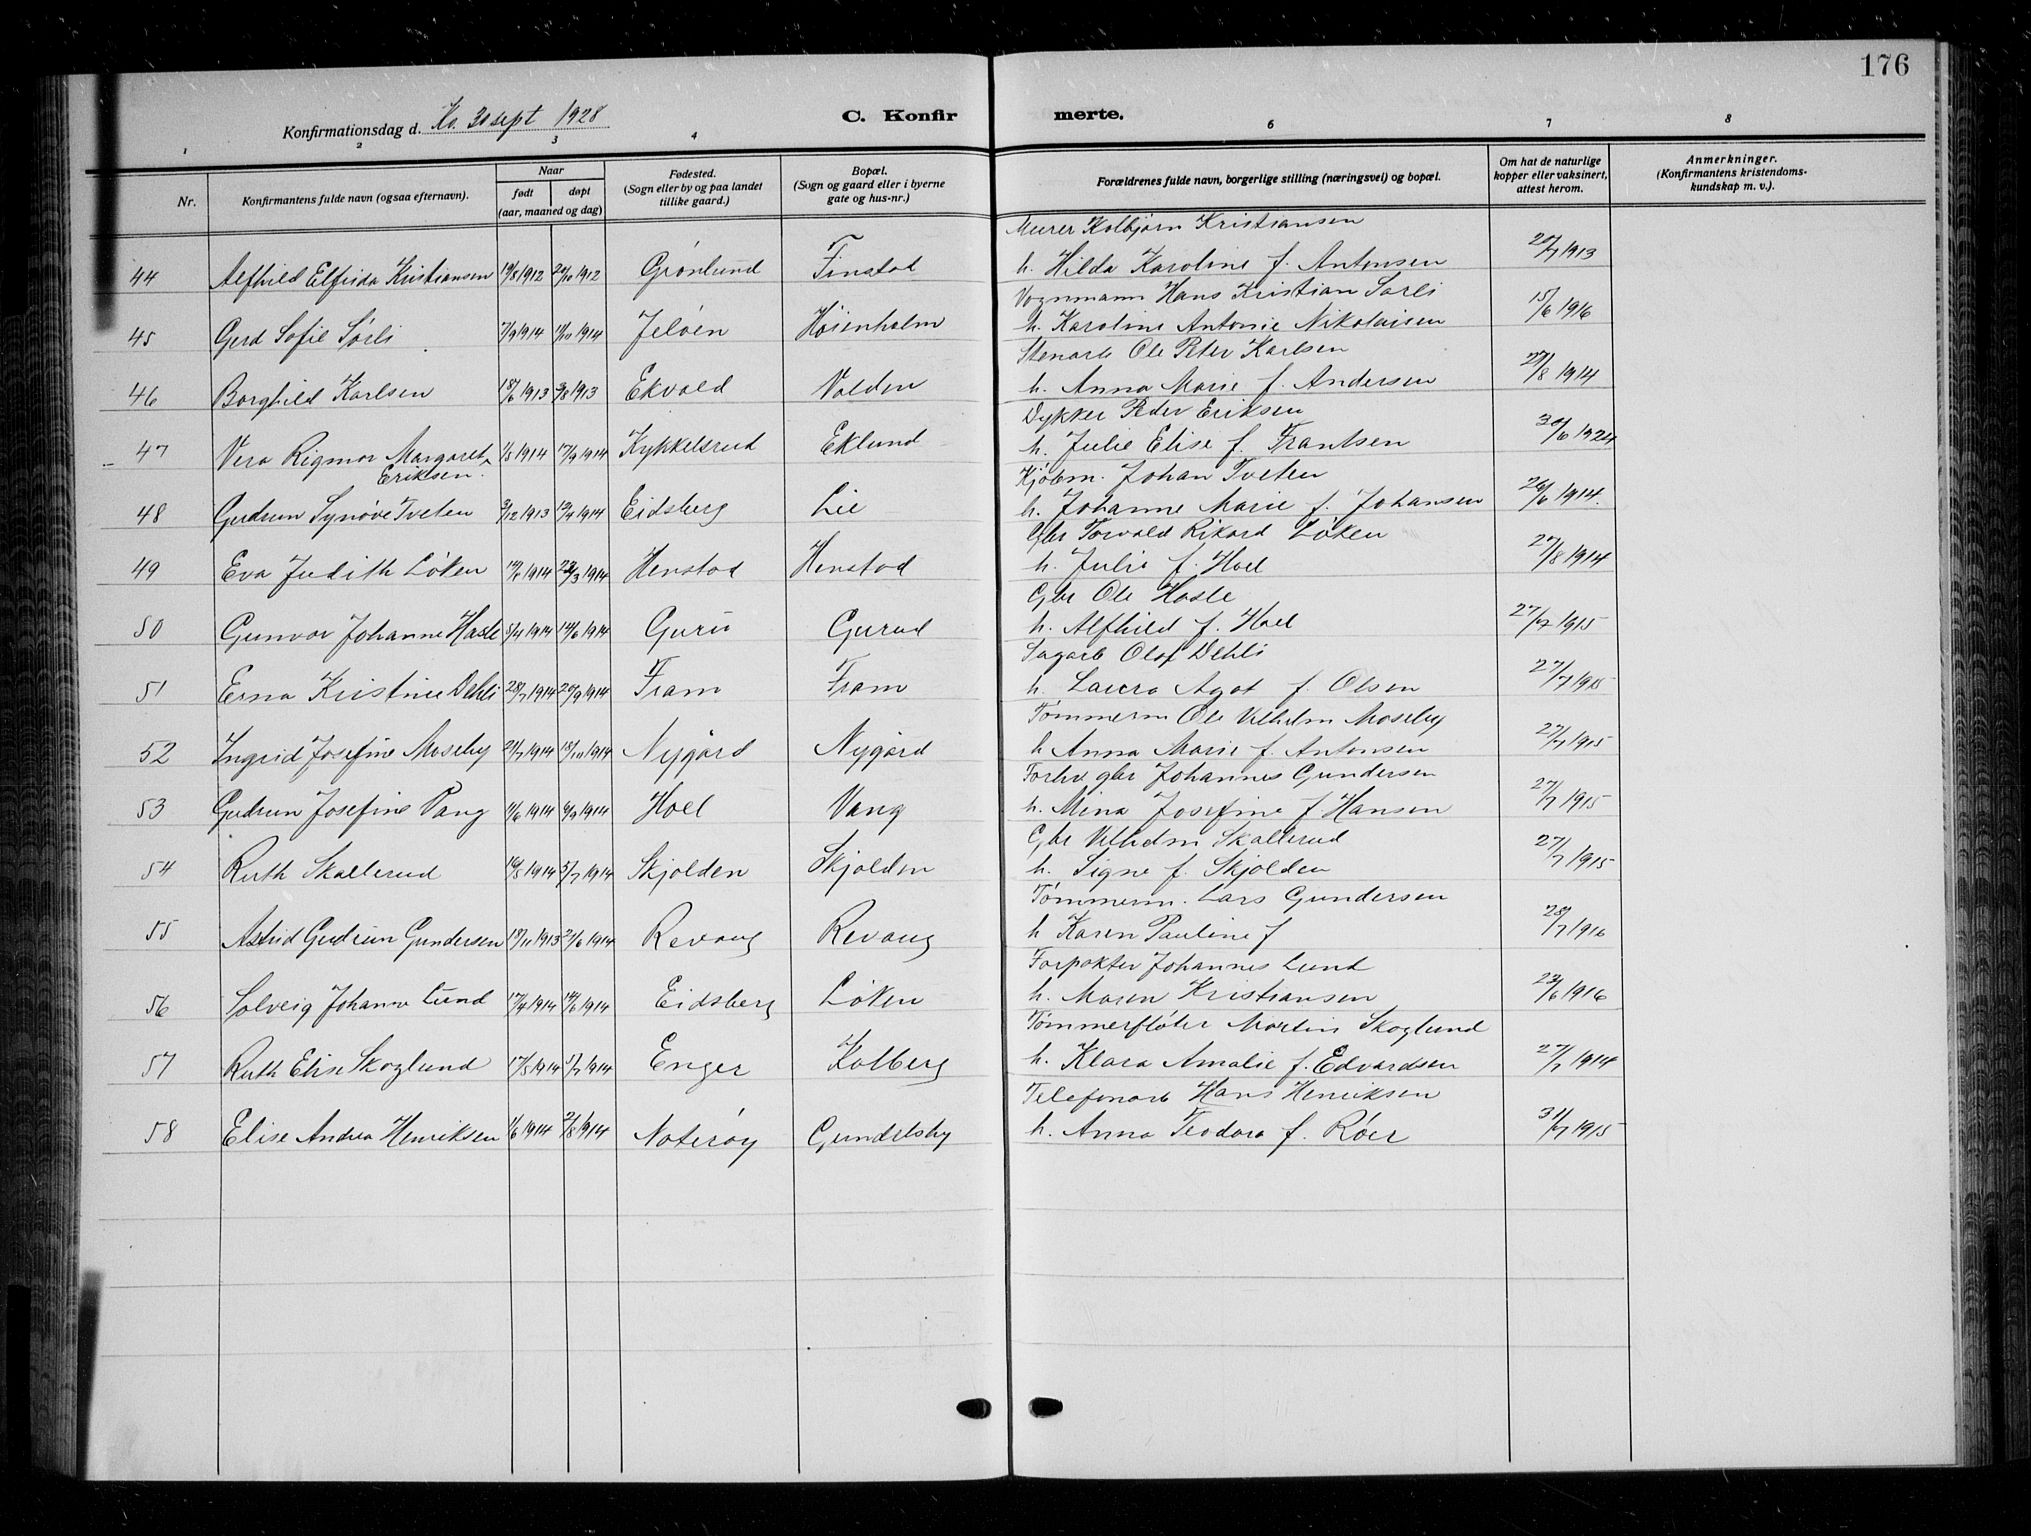 176
Konfirmationsdag d. Ko. 30 sept 1928
C. Konfirmerte.
1 2 3 4 6 7 8
Nr.
Konfirmantens fulde navn (ogsaa efternavn).
Naar
født døpt
(aar, maaned og dag)
Fødested.
(Sogn eller by og paa landet
tillike gaard.)
Bopæl.
(Sogn og gaard eller i byerne
gate og hus-nr.)
Forældrenes fulde navn, borgerlige stilling (næringsvei) og bopæl.
Om hat de naturlige
kopper eller vaksinert,
attest herom.
Anmerkninger.
(Konfirmantens kristendoms-
kundskap m. v.).
Murer Kolbjørn Kristiansen
44 Alfhild Elfrida Kristiansen 19/8 1912 20/10 1912 Grønlund Finstad h. Hilda Karoline f. Antonsen 1913
Vognmann Hans Kristian Sørli
45 Gerd Sofie Sørli 7/9 1914 11/10 1914 Jeløen Høienholm h. Karoline Antonie Nikolaisen 15/6 1916
Stenarb Ole Peter Karlsen
46 Borghild Karlsen 18/6 1913 3/8 1913 Ekvold Volden h. Anna Marie f. Andersen 27/8 1914
Dykker Peder Eriksen
47 Vera Rigmor Margaret 1/5 1914 17/9 1914 Kykkelsrud Eklund h. Julie Elise f. Frantsen 30/6 1924
Eriksen.
Kjøbm. Johan Tveten
48 Gudrun Synøve Tveten 3/12 1913 1914 Eidsberg Lie h. Johanne Marie f. Johansen 26/6 1914.
Gbr Torvald Rikard Løken
49 Eva Judith Løken 1914 1914 Henstad Henstad h. Julie f. Hoel 27/8 1914
Gbr Ole Hasle
50 Gunvor Johanne Hasle 5/4 1914 14/6 1914 Guru Gurud h. Alfhild f. Hoel 27/7 1915
Sagarb Olaf Dehli
51 Erna Kristine Dehli 28/7 1914 20/9 1914 Fram Fram h. Laura Agot f. Olsen 27/7 1915
Tømmerm Ole Vilhelm Moseby
52 Ingrid Josefine Moseby 21/7 1914 18/10 1914 Nygård Nygård h Anna Marie f. Antonsen 27/7 1915
Forhv gbr Johannes Gundersen
53 Gudrun Josefine Vang 11/6 1914 6/9 1914 Hoel Vang h. Mina Josefine f Hansen 27/7 1915
Gbr Vilhelm Skallerud
54 Ruth Skallerud 10/5 1914 5/7 1914 Skjolden Skjolden h. Signe f. Skjolden 27/7 1915
Tømmerm. Lars Gundersen
55 Astrid Gudrun Gundersen 18/11 1913 21/6 1914 Revaug Revaug h Karen Pauline f 28/7 1916
Forpakter Johannes Lund
56 Solveig Johanne Lund 17/4 1914 14/6 1914 Eidsberg Løken h. Maren Kristiansen 23/6 1916
Tømmerfløter Martin Skoglund
57 Ruth Elise Skoglund 17/5 1914 5/7 1914 Enger Kolberg h. Klara Amalie f. Edvardsen 27/7 1914
Telefonarb Hans Henriksen
58 Elise Andrea Henriksen 1/6 1914 2/8 1914 Nøterøy Gundelsby h. Anna Teodora f. Røer 31/7 1915